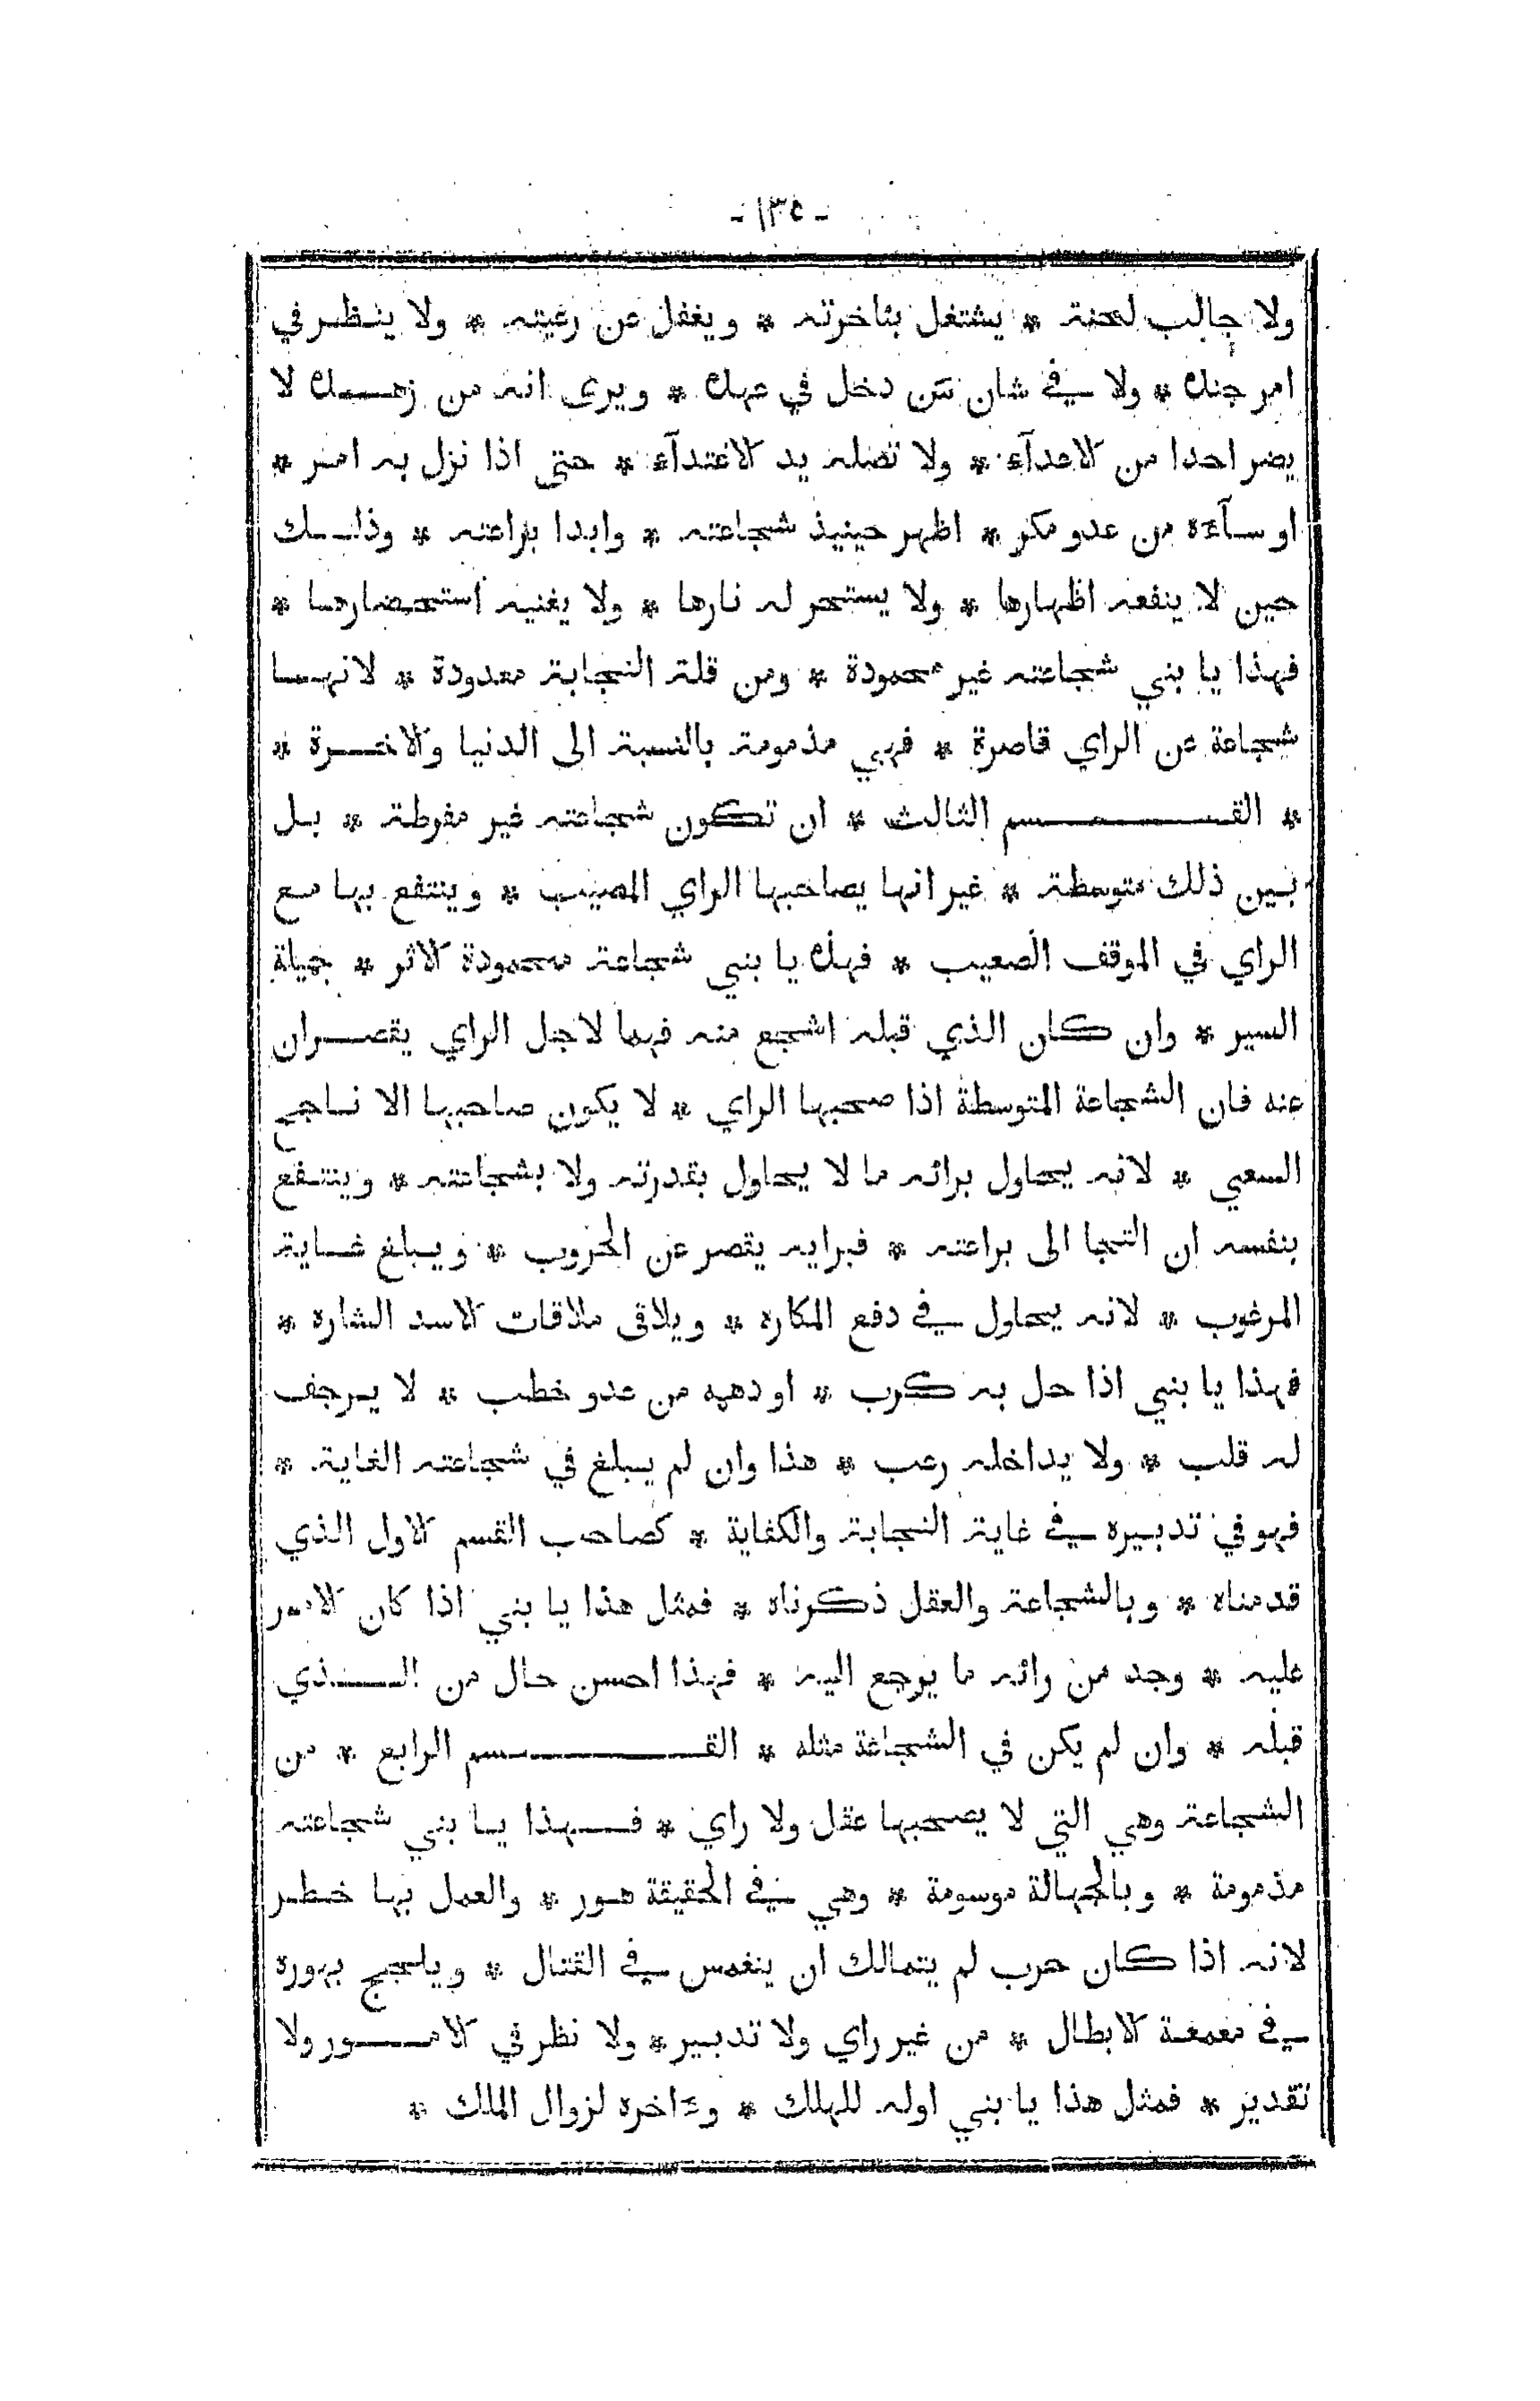 - ١٣٥ -
ولا جالب لمحنة * يشتغل بئاخرته * ويغفل عن رعيته * ولا ينظر في
امر جنده * ولا في شان من دخل في عهده * ويرى انه من زهده لا
يضر احدا من الاعدآء * ولا تصله يد الاعتدآء * حتى اذا نزل به امر *
او سآءه من عدو مكر * اظهر حينيذ شجاعته * وابدا براعته * وذلك
حين لا ينفعه اظهارها * ولا يستحر له نارها * ولا يغنيه استحضارها *
فهذا يا بني شجاعته غير محمودة * ومن قلة النجابة معدودة * لانها
شجاعة عن الراي قاصرة * فهي مذمومة بالنسبة الى الدنيا والاخرة *
* القسم الثالث * ان تكون شجاعته غير مفرطة * بل
بين ذلك متوسطة * غير انها يصاحبها الراي المصيب * وينتفع بها مع
الراي في الموقف الصعيب * فهذه يا بني شجاعة محمودة الاثر * جميلة
السير * وان كان الذي قبله اشجع منه فهما لاجل الراي يقصران
عنه فان الشجاعة المتوسطة اذا صحبها الراي * لا يكون صاحبها الا ناجح
السعي * لانه يحاول برائه ما لا يحاول بقدرته ولا بشجاعته * وينتفع
بنفسه ان التجا الى براعته * فبرايه يقصر عن الحروب * ويبلغ غاية
المرغوب * لانه يحاول في دفع المكاره * ويلاقى ملاقات الاسد الشاره *
فهذا يا بني اذا حل به كرب * او دهمه من عدو خطب * لا يرجف
له قلب * ولا يداخله رعب * هذا وان لم يبلغ في شجاعته الغاية *
فهو في تدبيره في غاية النجابة والكفاية * كصاحب القسم الاول الذي
قدمناه * وبالشجاعة والعقل ذكرناه * فمثل هذا يا بني اذا كان الامر
عليه * وجد من رائه ما يرجع اليه * فهذا احسن حال من الذي
قبله * وان لم يكن في الشجاعة مثله * القسم الرابع * من
الشجاعة وهي التي لا يصحبها عقل ولا راي * فهذا يا بني شجاعته
مذمومة * وبالجهالة موسومة * وهي في الحقيقة هور * والعمل بها خطر
لانه اذا كان حرب لم يتمالك ان ينغمس في القتال * ويلجج بهوره
في معمعة الابطال * من غير راي ولا تدبير * ولا نظر في الامور ولا
تقدير * فمثل هذا يا بني اوله للهلك * وءاخره لزوال الملك *